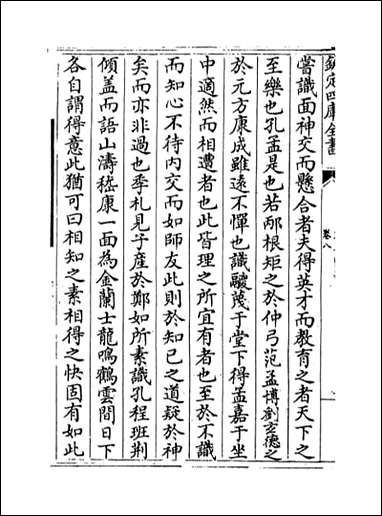 欽定四庫全書
卷八
嘗識面神交而懸合者夫得英才而教育之者天下之
至樂也孔孟是也若邴根矩之於仲弓范孟博劉玄德之
於元方康成雖遠不憚也識駿蔑于堂下得孟嘉于坐
中適然而相遭者也此皆理之所宜有者也至於不識
而知心不待内交而如師友此則於知已之道疑於神
矣而亦非過也季札見子產於鄭如所素識孔程班荆
傾盖而語山濤嵇康一面為金蘭士龍鳴鶴雲間日下
各自謂得意此猶可曰相知之素相得之快固有如此